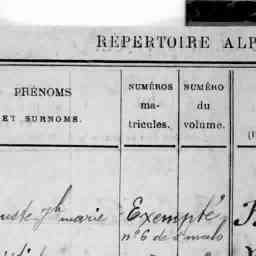 RÉPERTOIRE ALP
PRÉNOMS
ET SURNOMS.
NUMÉROS
ma-
tricules.
NUMÉRO
du
volume.
marie Exempté
n° 6 de